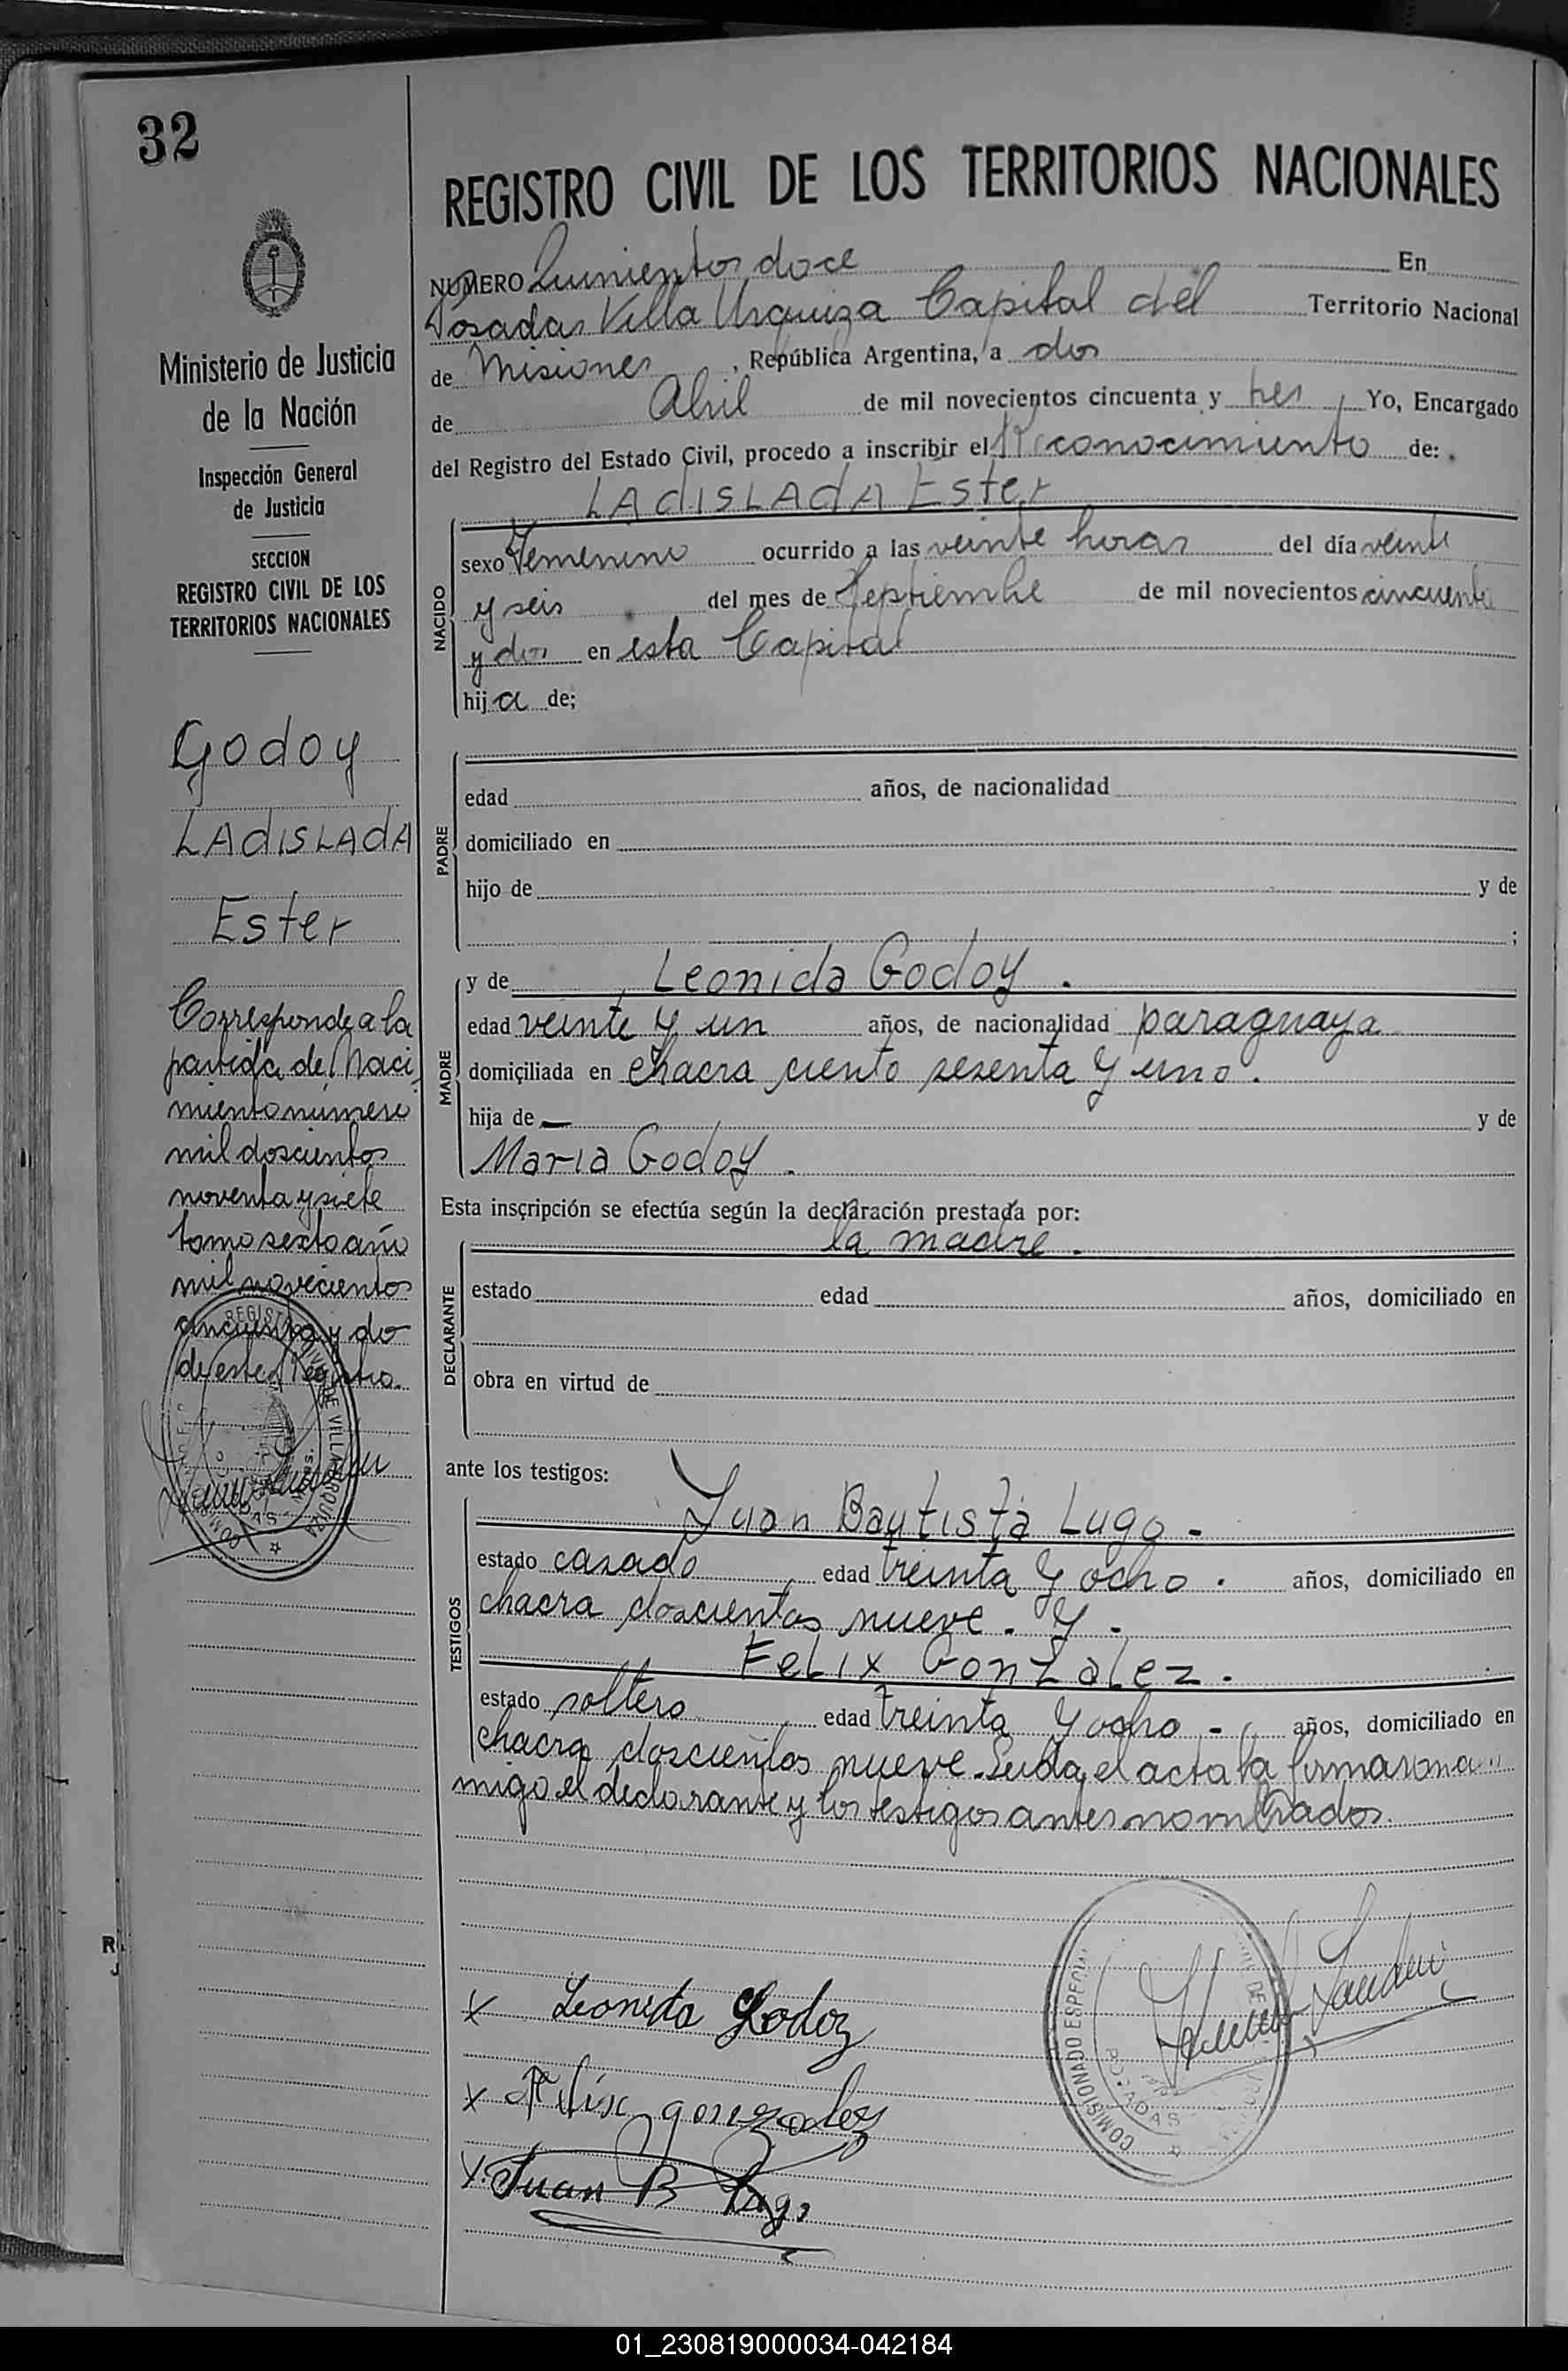 32
REGISTRO CIVIL DE LOS TERRITORIOS NACIONALES
Ministerio de Justicia
de la Nación
Inspección General
de Justicia
SECCION
REGISTRO CIVIL DE LOS
TERRITORIOS NACIONALES
Godoy
LAdISLAdA
Ester
Corresponde a la
partida de Naci
miento número
mil doscientos
noventa y siete
tomo sexto año
mil novecientos
cincuenta y do
de este Registro.
NUMERO Quinientos doce En
Posadas Villa Urquiza Capital del Territorio Nacional
de Misiones, República Argentina, a dos
de Abril de mil novecientos cincuenta y tres Yo, Encargado
del Registro del Estado Civil, procedo a inscribir el Reconocimiento de:
LAdISLAdA Ester
NACIDO
sexo Femenino ocurrido a las veinte horas del día veinte
y seis del mes de Septiembre de mil novecientos cincuenta
y dos en esta Capital
hija de;
PADRE
edad años, de nacionalidad
domiciliado en
hijo de y de
;
MADRE
y de Leonida Godoy.
edad veinte y un años, de nacionalidad paraguaya
domiciliada en chacra ciento sesenta y uno.
hija de — y de
Maria Godoy.
Esta inscripción se efectúa según la declaración prestada por:
la madre.
DECLARANTE
estado edad años, domiciliado en
obra en virtud de
ante los testigos:
TESTIGOS
Juan Bautista Lugo -
estado casado edad treinta y ocho. años, domiciliado en
chacra doscientos nueve. y.
FeLix GonzaLez.
estado soltero edad treinta y ocho - años, domiciliado en
chacra doscientos nueve. Leida el acta la firmaron con
migo el declarante y los testigos antes nombrados.
x Leonida Godoy
x Felix gonzalez
x Juan B Lugo
COMISIONADO ESPECIAL
POSADAS
01_230819000034-042184